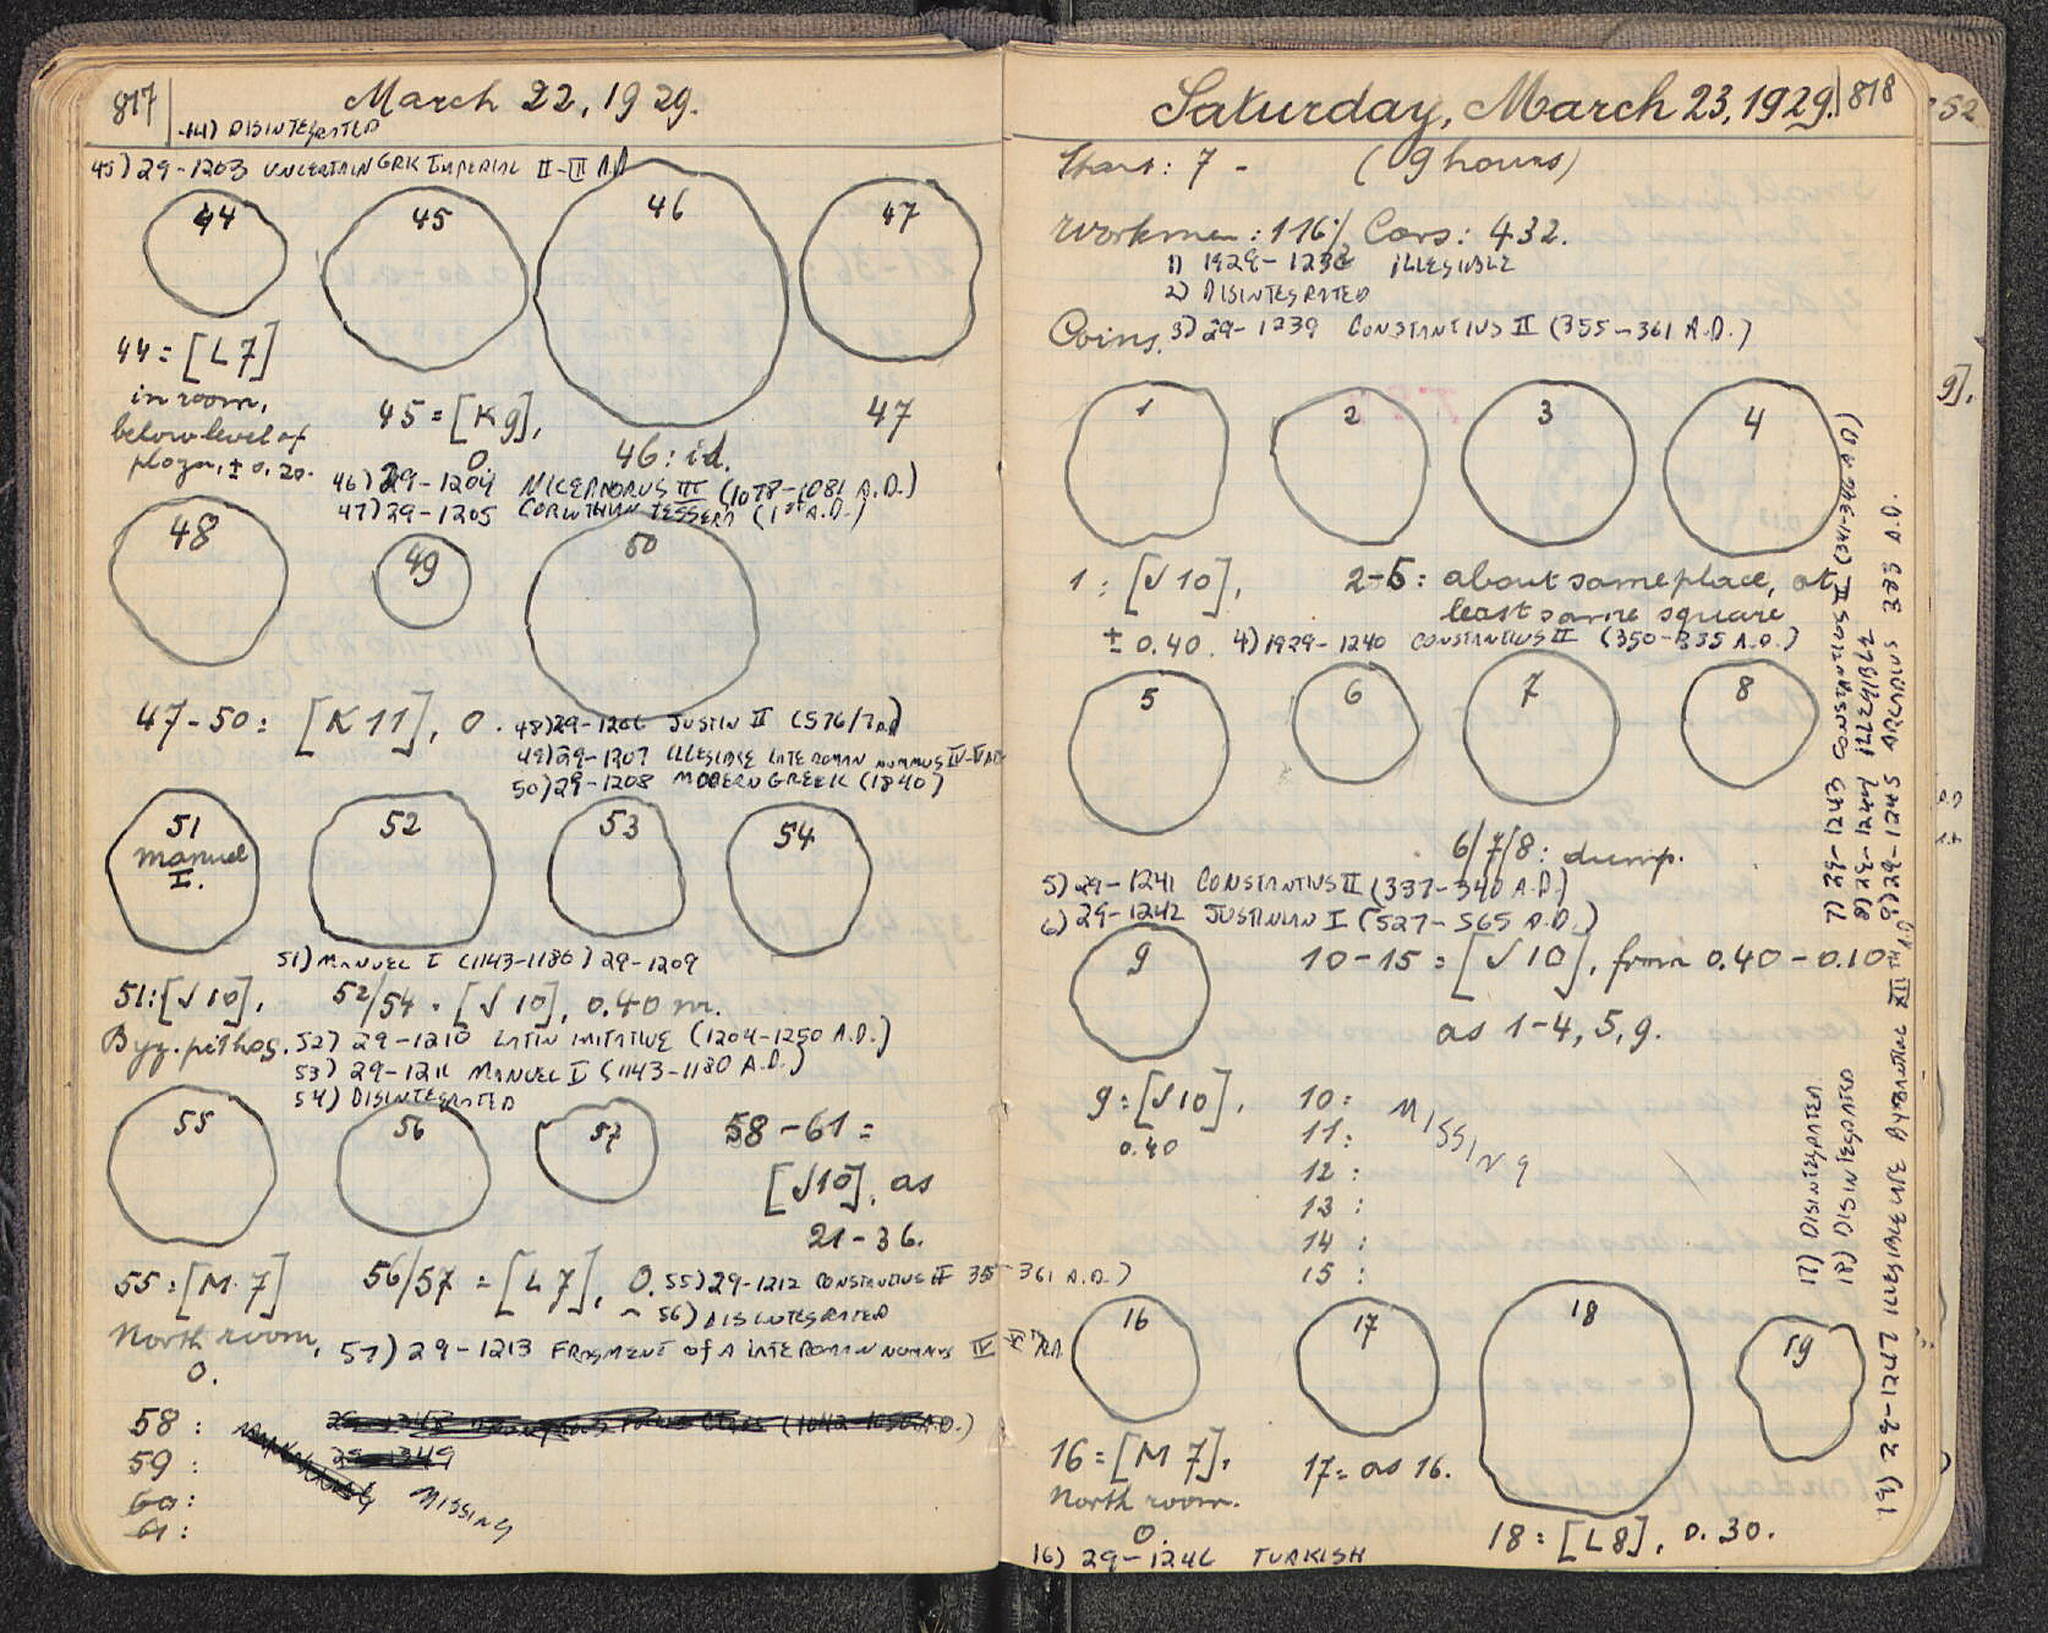 817
March 22, 1929.
44) DISINTEGRATED
45) 29-1203 UNCERTAIN GRK IMPERIAL II-III A.D
44
45
46
47
44 = [L 7]
in room,
below level of
plaza, ± 0.20.
45 = [K 9],
0.
46: id.
47
46) 29-1204 NICEPHORUS III (1078-1081 A.D.)
47) 29-1205 CORINTHIAN TESSERA (1st A.D.)
48
49
50
47-50: [K 11], 0.
48) 29-1206 JUSTIN II (576/7 A.D)
49) 29-1207 ILLEGIBLE LATE ROMAN NUMMUS IV-V A.D.
50) 29-1208 MODERN GREEK (1840)
51
manuel
I.
52
53
54
51) MANUEL I (1143-1180) 29-1209
51: [J 10],
Byz. pithos.
52/54. [J 10], 0.40 m.
52) 29-1210 LATIN IMITATIVE (1204-1250 A.D.)
53) 29-1211 MANUEL I (1143-1180 A.D.)
54) DISINTEGRATED
55
56
57
58-61 =
[J 10], as
21-36.
55 = [M 7]
North room,
0.
56/57 = [L 7], 0.
55) 29-1212 CONSTANTIUS II 35-361 A.D.)
56) DISINTEGRATED
57) 29-1213 FRAGMENT of A LATE ROMAN NUMMUS IV
58:
59:
60:
61:
29-1349
MISSING
Saturday, March 23, 1929.
818
Start: 7 - (9 hours)
Workmen: 116 / Cars: 432.
1) 1929-1238 ILLEGIBLE
2) DISINTEGRATED
Coins.
3) 29-1239 CONSTANTIUS II (355-361 A.D.)
1
2
3
4
1: [J 10],
± 0.40.
2-5: about same place, at
least same square
4) 1929-1240 CONSTANTIUS II (350-355 A.D.)
5
6
7
8
6/7/8: dump.
5) 29-1241 CONSTANTIUS II (337-340 A.D.)
6) 29-1242 JUSTINIAN I (527-565 A.D.)
7) 29-1243 CONSTANTIUS II (341-346 A.D)
8) 29-1244 ILLEGIBLE
9) 29-1245 ARCADIUS 383 A.D.
9
10-15 = [J 10], from 0.40-0.10
as 1-4, 5, 9.
9: [J 10],
0.40
10:
11:
12:
13:
14:
15:
MISSING
17) DISINTEGRATED
18) DISINTEGRATED
19) 29-1247 ILLEGIBLE LATE BYZANTINE XIITH A.D
16
17
18
19
16 = [M 7],
North room.
0.
17 = as 16.
18 = [L 8], 0.30.
16) 29-1246 TURKISH
52
9],